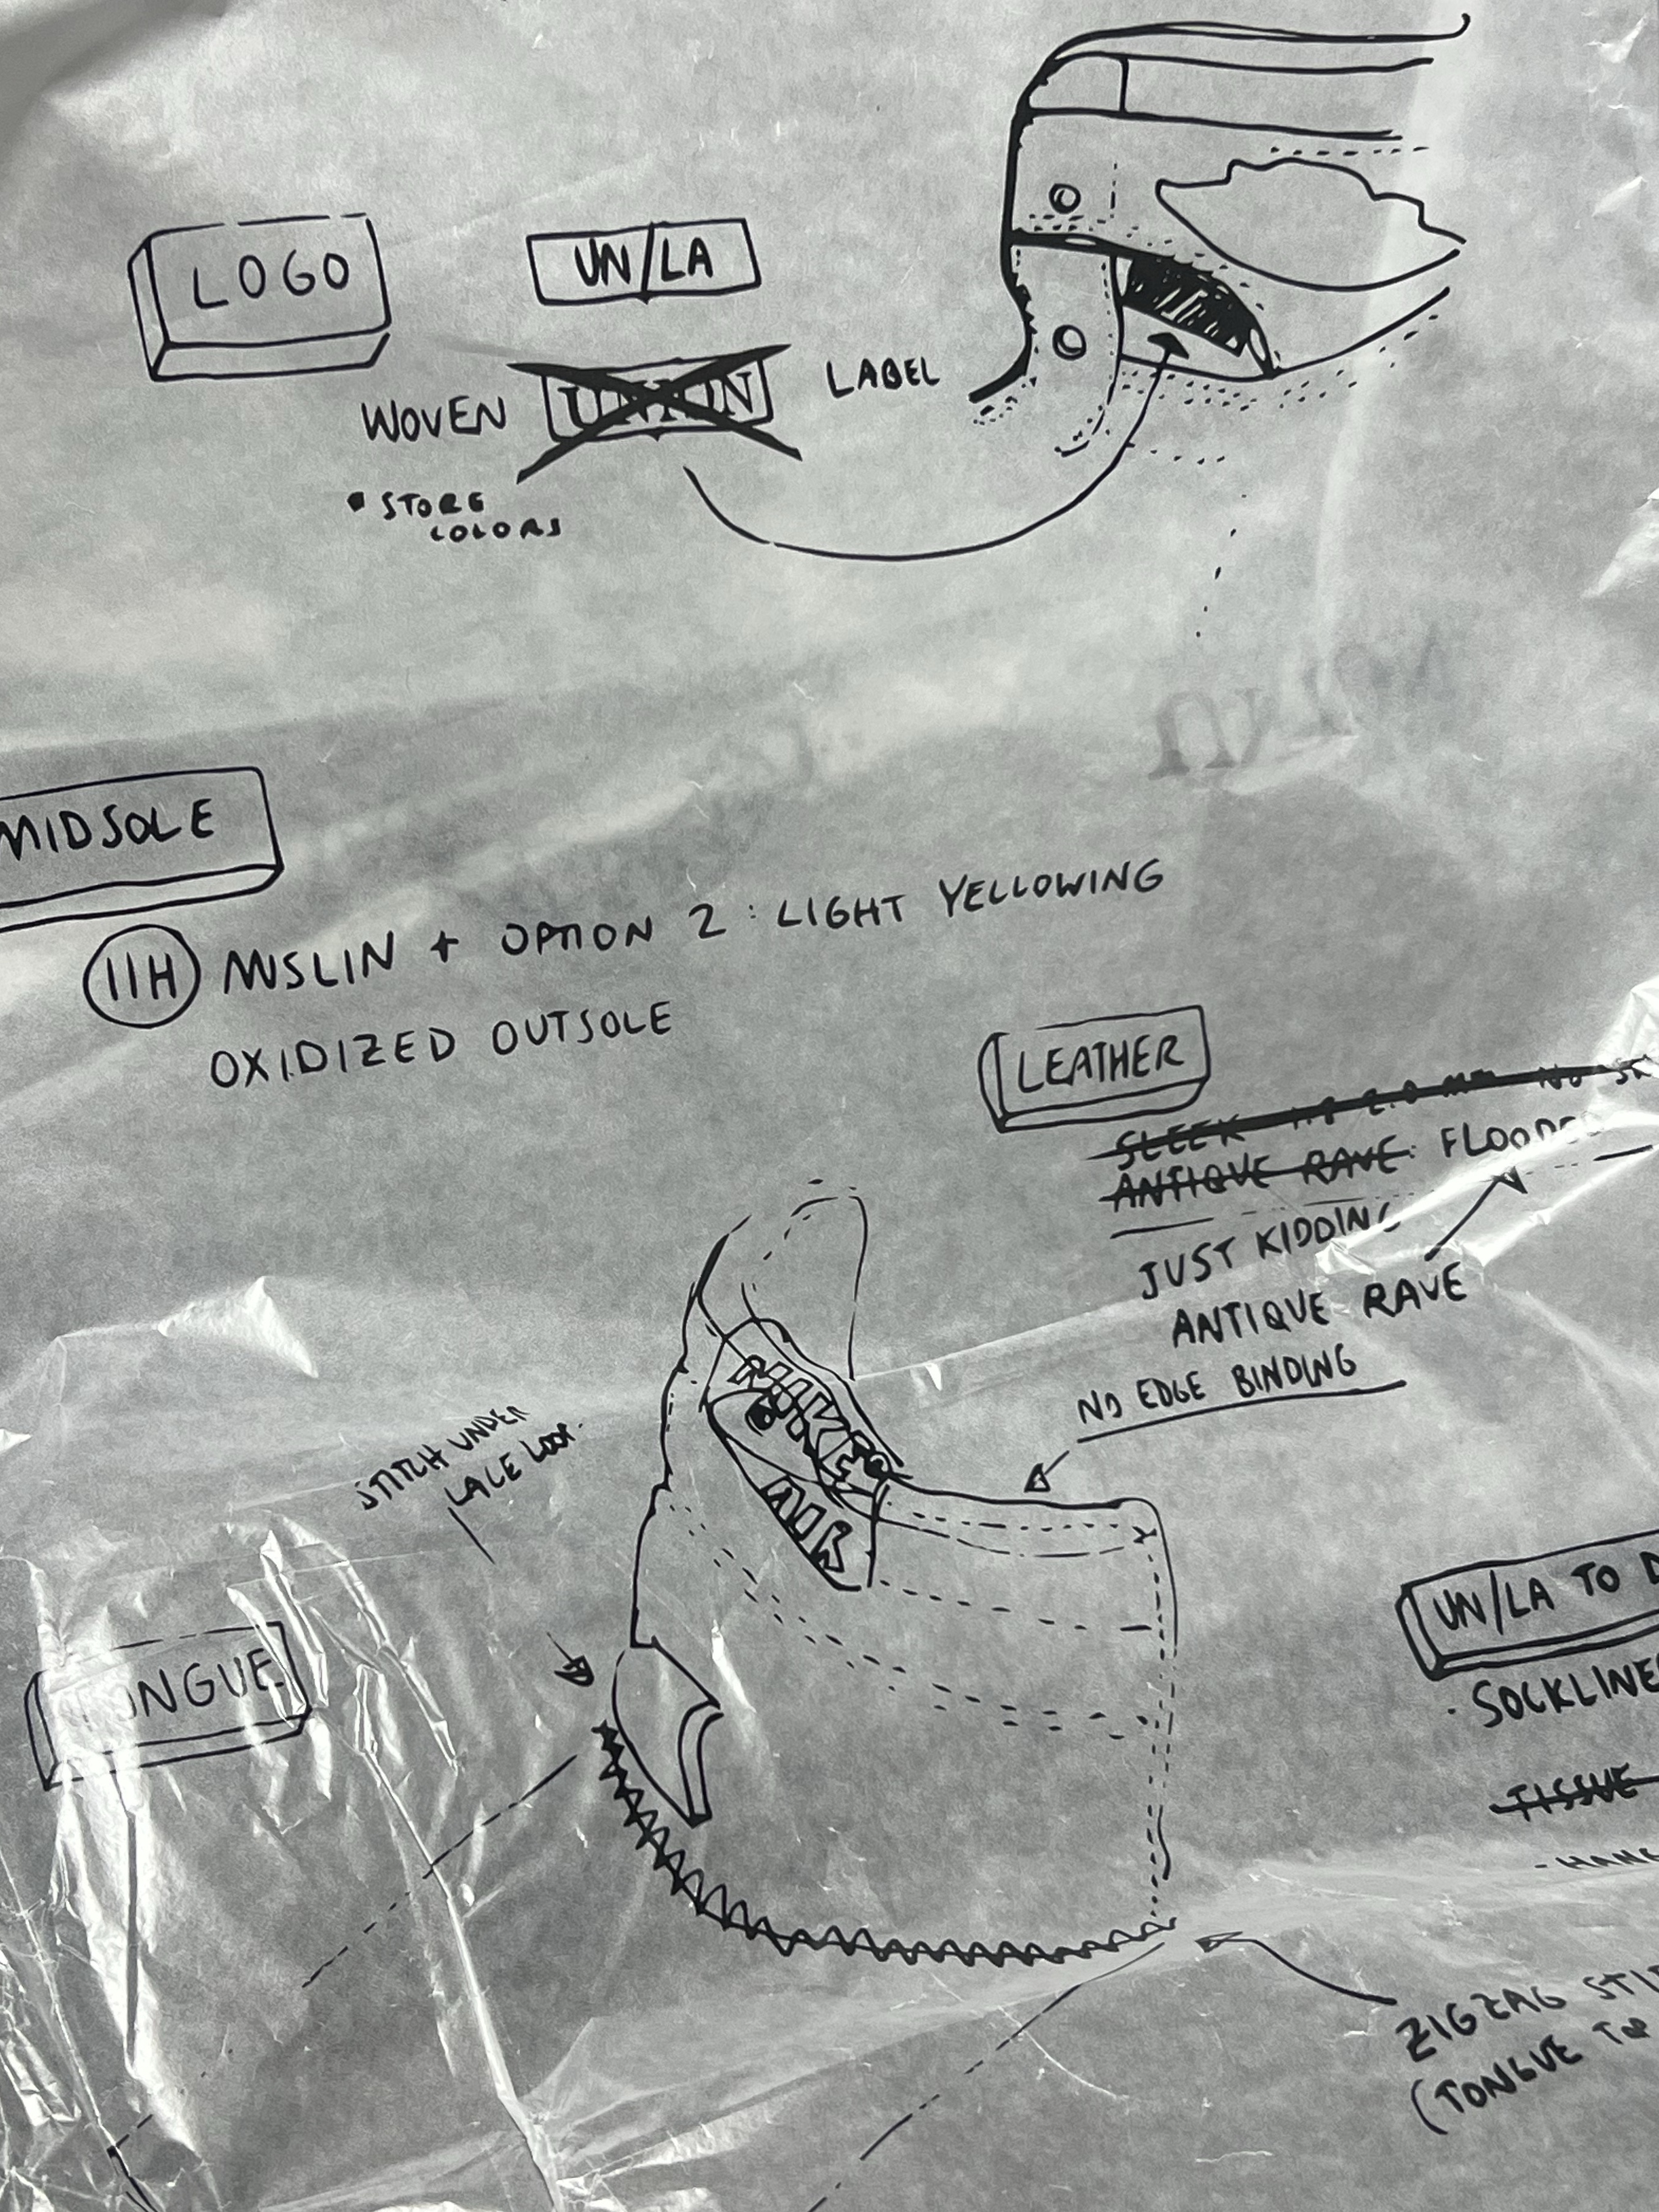 LOGO
UN/LA
WOVEN UNION LABEL
• STORE
COLORS
MIDSOLE
11H MUSLIN + OPTION 2: LIGHT YELLOWING
OXIDIZED OUTSOLE
LEATHER
SLEEK 1.8 2.0 mm NO
ANTIQUE RAVE: FLOODED
JUST KIDDING
ANTIQUE RAVE
NO EDGE BINDING
STITCH UNDER
LACE LOOP.
NIKE
AIR
TONGUE
UN/LA TO
· SOCKLINER
- TISSUE
ZIGZAG
(TONGUE TOP